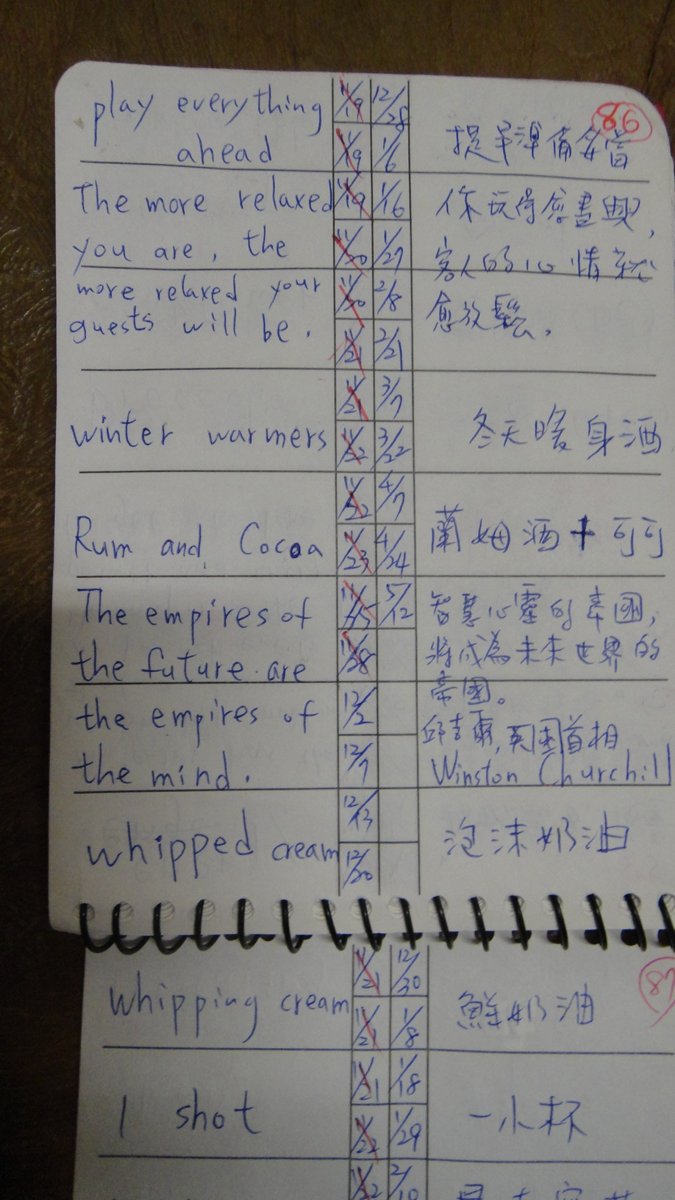 86
play everything
ahead
11/19 12/28
11/19 1/6
提早準備妥當
The more relaxed
you are, the
more relaxed your
guests will be.
11/19 1/16
11/20 1/27
11/20 2/8
11/21 2/21
你玩得愈盡興,
客人的心情就
愈放鬆.
winter warmers
11/21 3/7
11/22 3/22
冬天暖身酒
Rum and Cocoa
11/22 4/7
11/23 4/24
蘭姆酒+可可
The empires of
the future are
the empires of
the mind.
5/12
11/28
12/2
12/7
智慧心靈的帝國,
將成為未來世界的
帝國。
邱吉爾,英国首相
Winston Churchill
whipped cream
12/13
12/20
泡沫奶油
87
whipping cream
11/21 12/30
11/21 1/8
鮮奶油
1 shot
11/21 1/18
11/22 1/29
一小杯
11/22 2/10